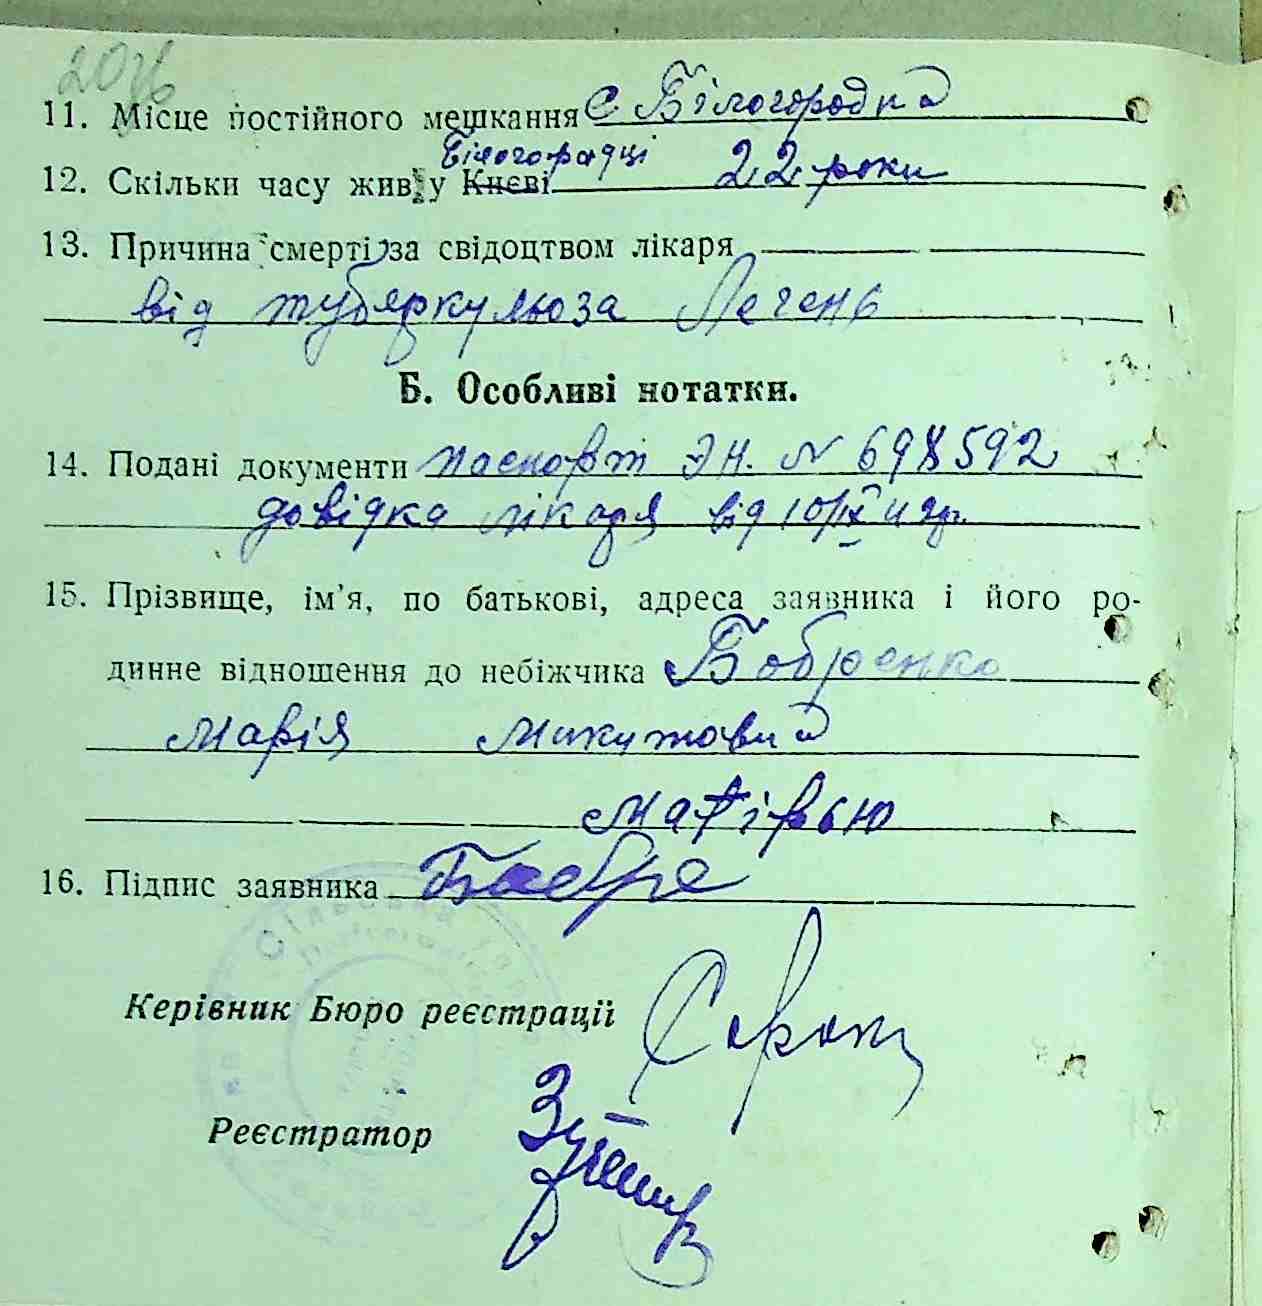 11. Місце постійного мешкання с Білогородка
Білогородці
12. Скільки часу жив у Києві 22 роки
13. Причина смерті за свідоцтвом лікаря
від туберкульоза Легень
Б. Особливі нотатки.
14. Подані документи паспорт ЭН. № 698592
довідка лікаря від 10/IX
15. Прізвище, ім'я, по батькові, адреса заявника і його ро-
динне відношення до небіжчика Бобренко
Марія Микитовна
матірью
16. Підпис заявника
Керівник Бюро реєстрації
Реєстратор